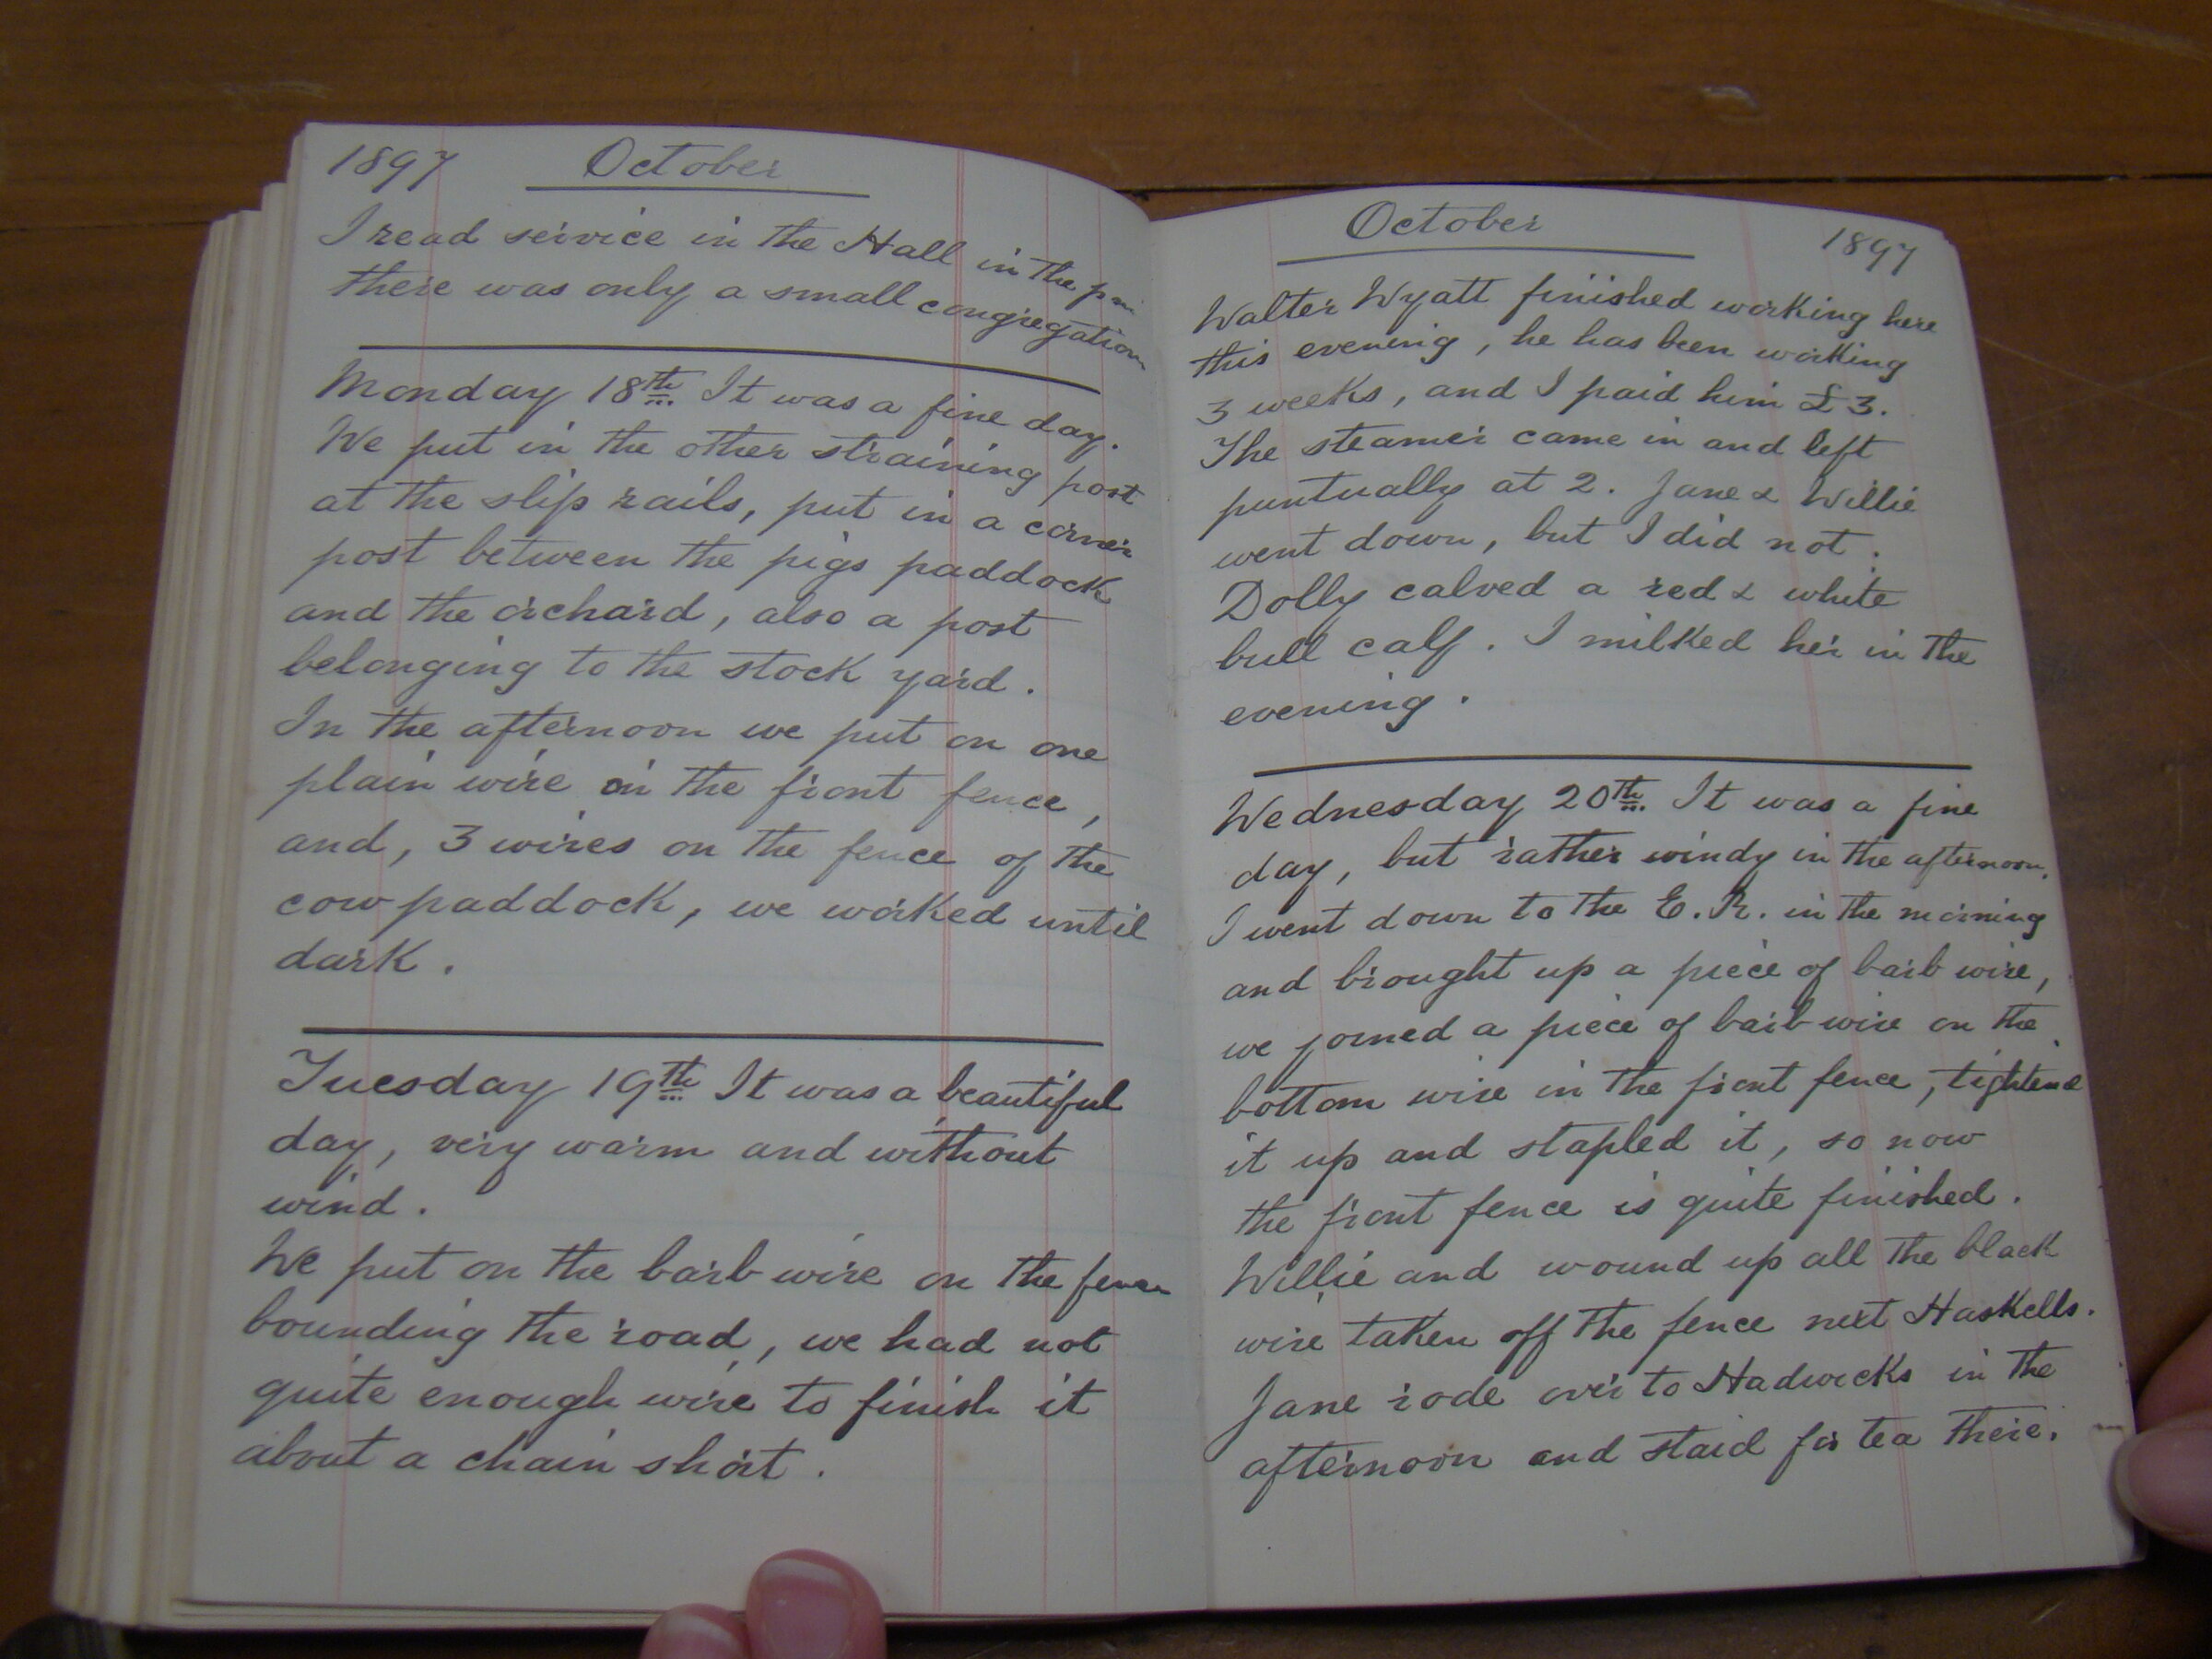 1897 October
I read service in the Hall in the pm
there was only a small congregation
Monday 18th It was a fine day.
We put in the other straining post
at the slip rails, put in a corner
post between the pigs paddock
and the orchard, also a post
belonging to the stock yard.
In the afternoon we put on one
plain wire on the front fence,
and, 3 wires on the fence of the
cow paddock, we worked until
dark.
Tuesday 19th It was a beautiful
day, very warm and without
wind.
We put on the barb wire on the fence
bounding the road, we had not
quite enough wire to finish it
about a chain short.
October 1897
Walter Wyatt finished working here
this evening, he has been working
3 weeks, and I paid him £3.
The steamer came in and left
puntually at 2. Jane & Willie
went down, but I did not.
Dolly calved a red & white
bull calf. I milked her in the
evening.
Wednesday 20th It was a fine
day, but rather windy in the afternoon.
I went down to the E. R. in the morning
and brought up a piece of barb wire,
we joined a piece of barb wire on the
bottom wire in the front fence, tightend
it up and stapled it, so now
the front fence is quite finished.
Willie and wound up all the black
wire taken off the fence next Haskells.
Jane rode over to Hadwicks in the
afternoon and staid for tea there.